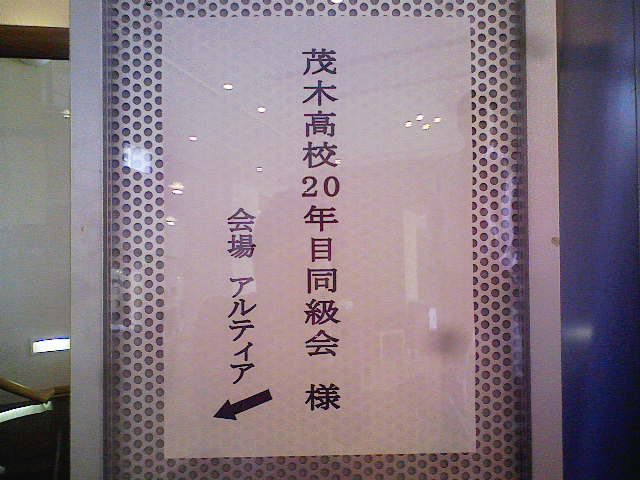 茂木高校20年目同級会 様
会場 アルティア